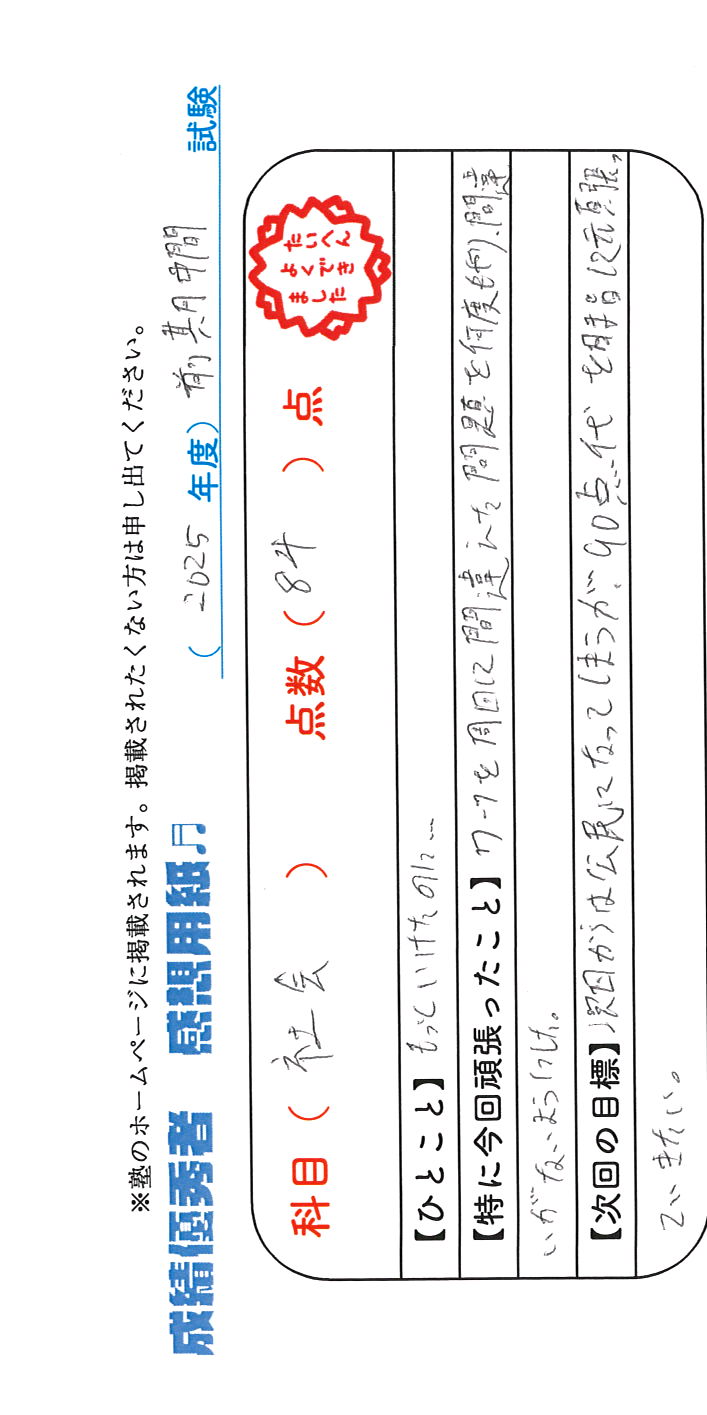 ※塾のホームページに掲載されます。掲載されたくない方は申し出てください。
成績優秀者 感想用紙♫ ( 2025 年度) 前期中間 試験
科目 ( 社会 ) 点数 ( 84 ) 点
たいへん
よくでき
ました
【ひとこと】 もっといけたのに…
【特に今回頑張ったこと】 ワークを 周目に間違えた問題を何度もやり、間違
いがないようにした。
【次回の目標】 次回からは公民になってしまうが、90点代を目指して頑張っ
ていきたい。